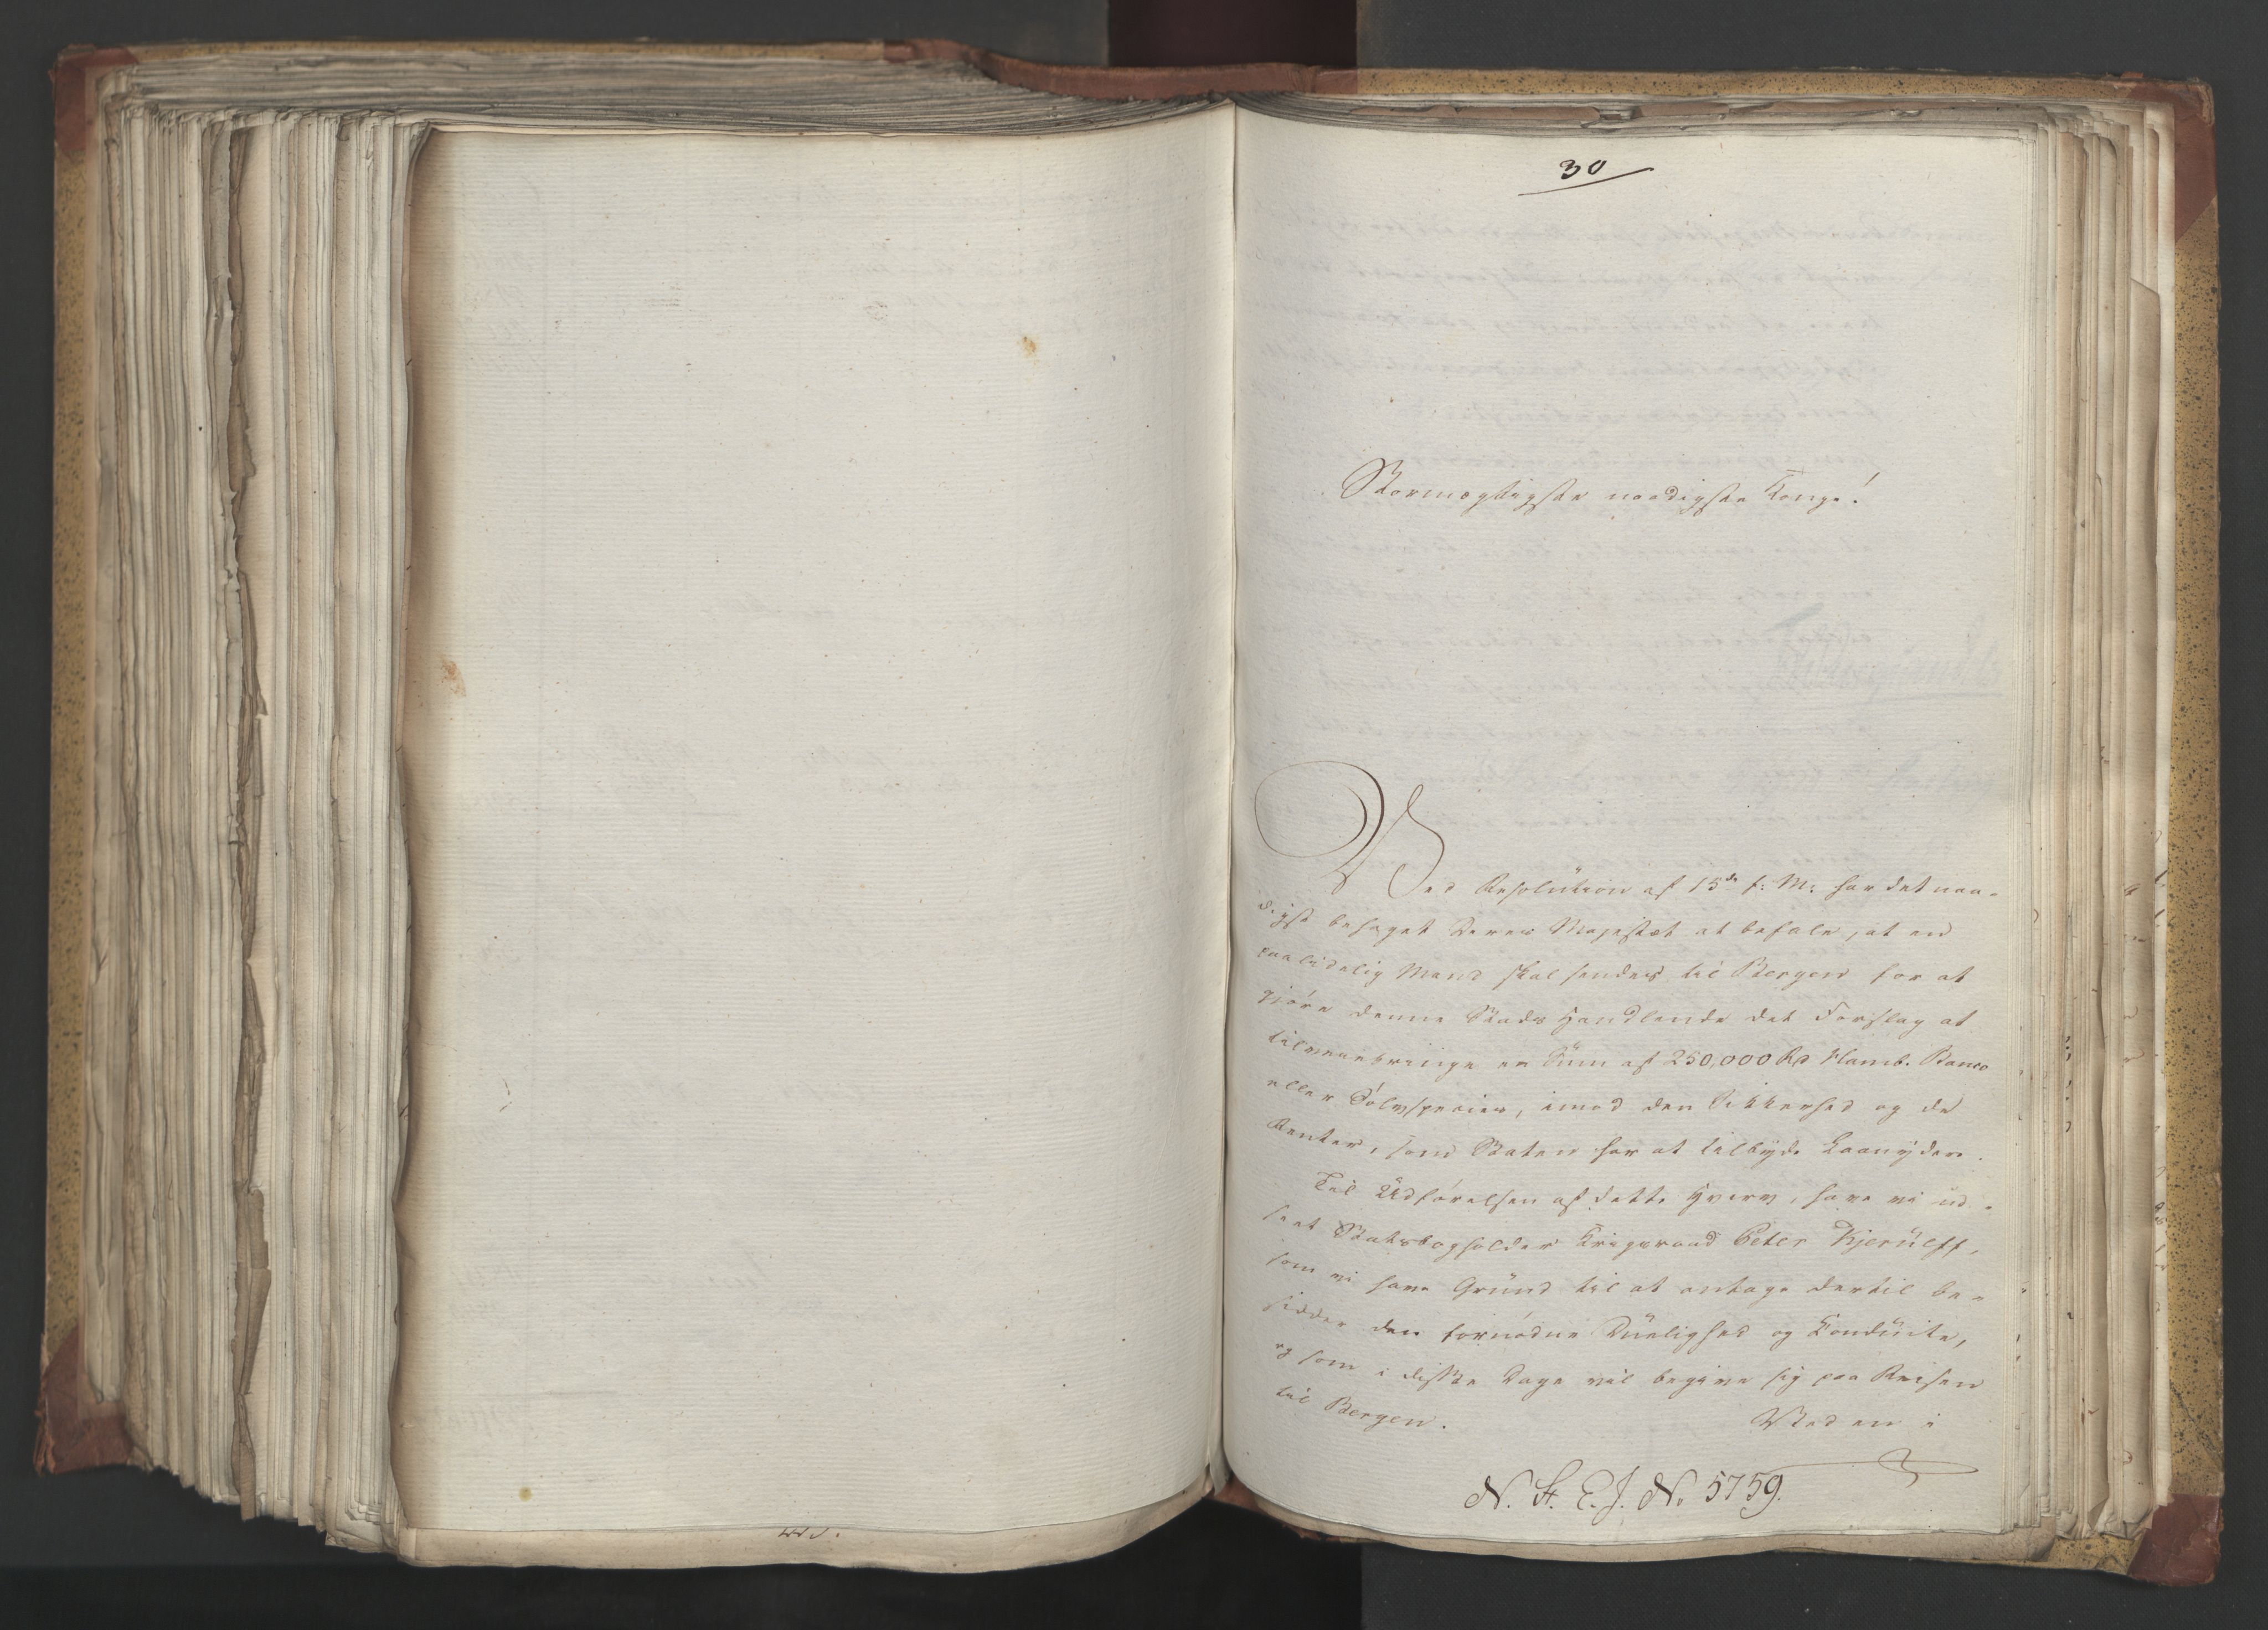 30
Stormægtigste naadigste Konge!
Ved Resolution af 15de f: M: har det naa-
digst behaget Deres Majestæt at befale, at en
paalidelig Mand skal sendes til Bergen for at
giöre denne Stads Handlende det Forslag at
tilveiebringe en Sum af 250,000 Rd Hamb. Banco
eller Sölvspecies, imod den Sikkerhed og de
Renter, som Staten har at tilbyde Laanydere.
Til Udförelsen af dette Hverv, have vi ud-
seet Statsbogholder Krigsraad Peter Kjerülff,
som vi have Grund til at antage dertil be-
sidder den fornödne Duelighed og Conduite,
og som i disse Dage vil begive sig paa Reisen
til Bergen.
Ved en i
N. St. E. J. No 5759.